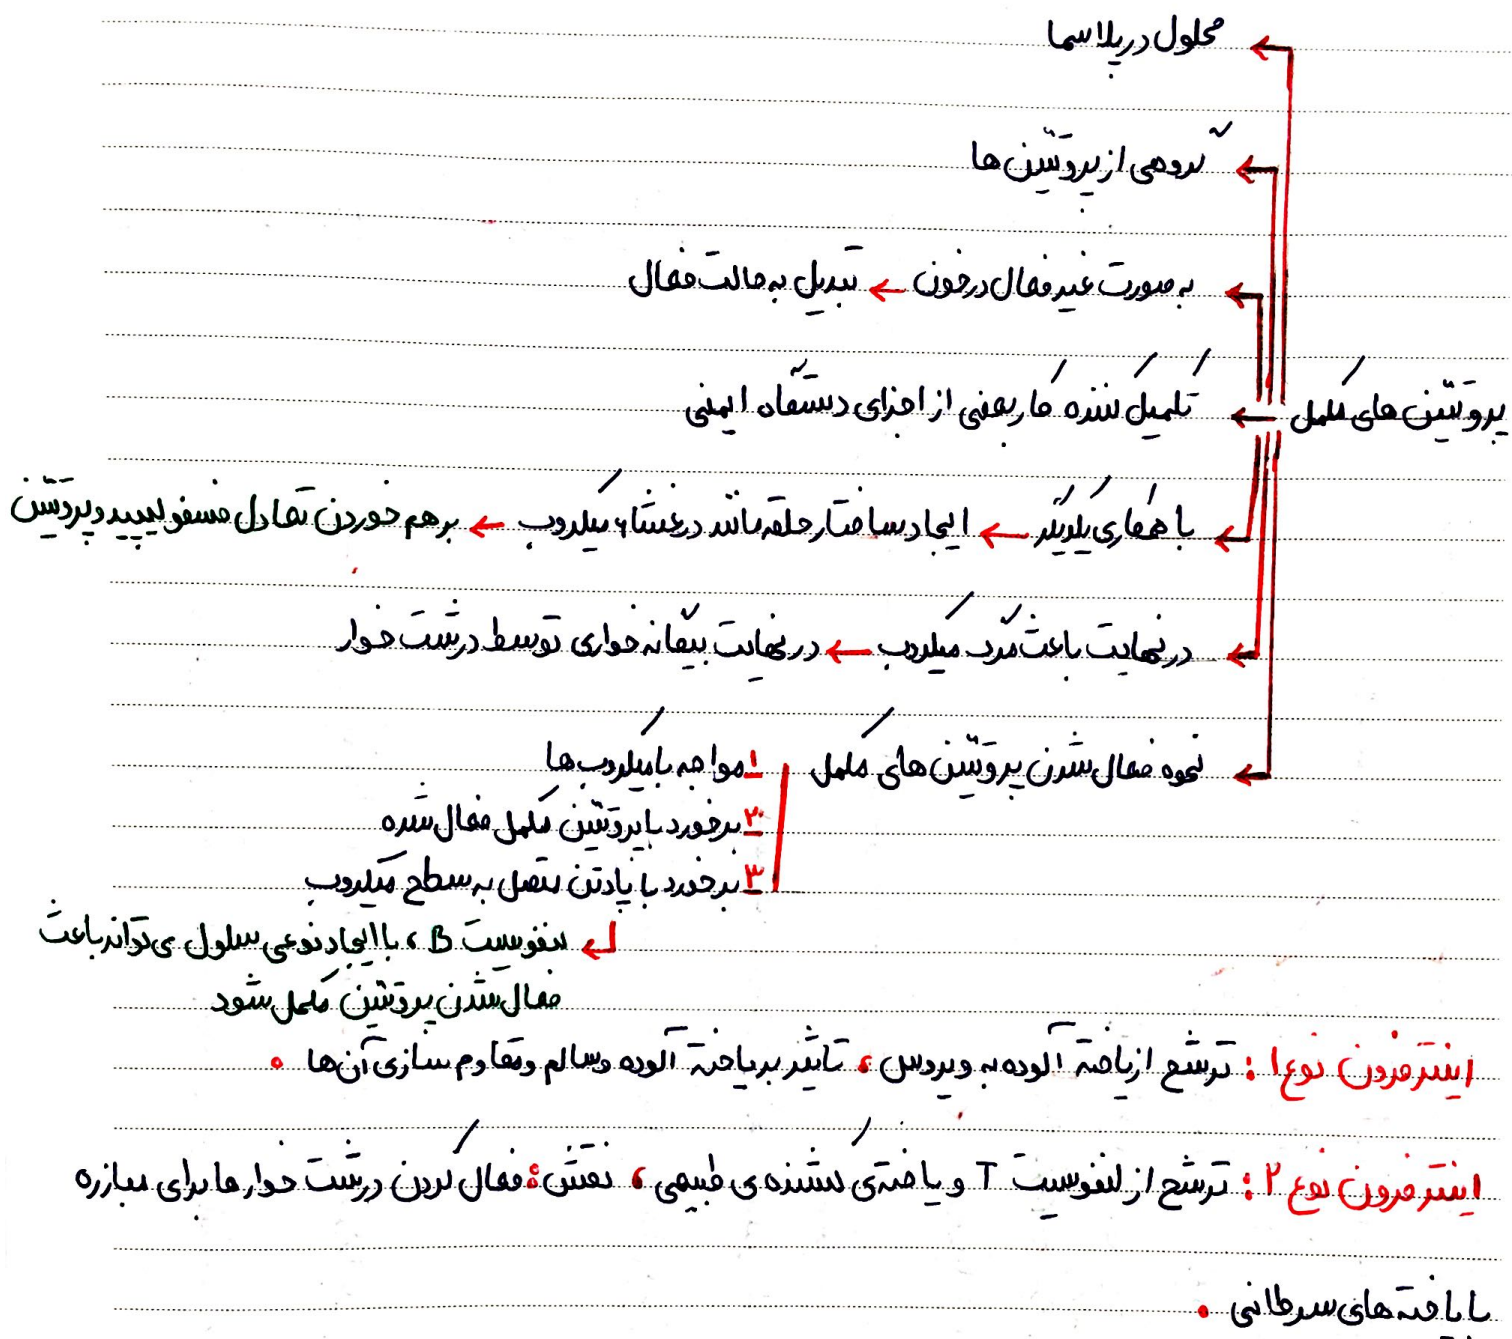 محلول در پلاسما
گروهی از پروتئین ها
به صورت غیر فعال در خون ← تبدیل به حالت فعال
پروتئین های مکمل ← تکمیل کننده کار بعضی از اجزای دستگاه ایمنی
با همکاری یکدیگر ← ایجاد ساختار حلقه مانند در غشاء میکروب ← برهم خوردن تعادل فسفولیپید و پروتئین
در نهایت باعث مرگ میکروب ← در نهایت بیگانه خواری توسط درشت خوار
نحوه فعال شدن پروتئین های مکمل ۱ مواجه با میکروب ها
۲ برخورد با پروتئین مکمل فعال شده
۳ برخورد با پادتن متصل به سطح میکروب
لنفوسیت B، با ایجاد نوعی سلول می تواند باعث
فعال شدن پروتئین مکمل شود
اینترفرون نوع ۱ : ترشح از یاخته آلوده به ویروس، تاثیر بر یاخته آلوده و سالم و مقاوم سازی آن ها .
اینترفرون نوع ۲ : ترشح از لنفوسیت T و یاخته ی کشنده ی طبیعی، نقش: فعال کردن درشت خوار ها برای مبارزه
با یاخته های سرطانی .